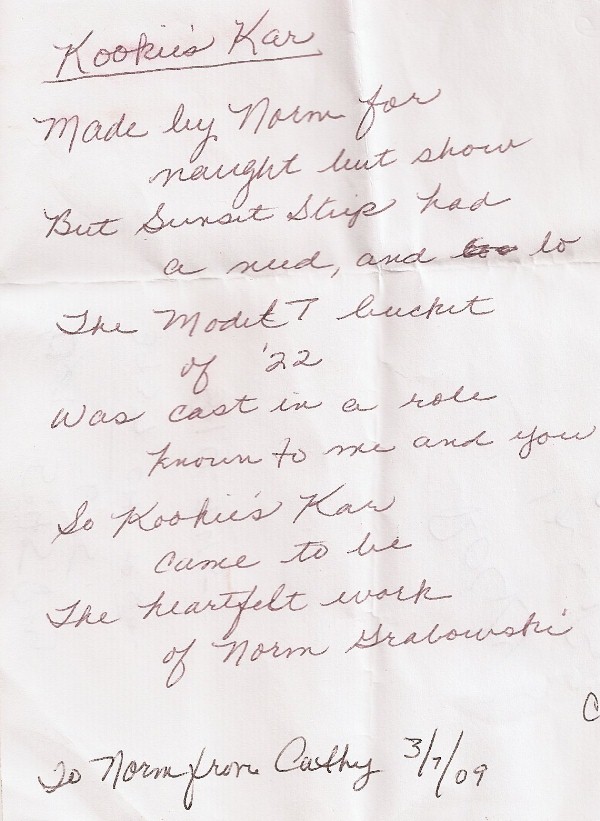 Kookie's Kar
Made by Norm for
naught but show
But Sunset Strip had
a need, and lo
The Model T bucket
of '22
Was cast in a role
known to me and you
So Kookie's Kar
came to be
The heartfelt work
of Norm Grabowski
C
To Norm from Cathy 3/7/09